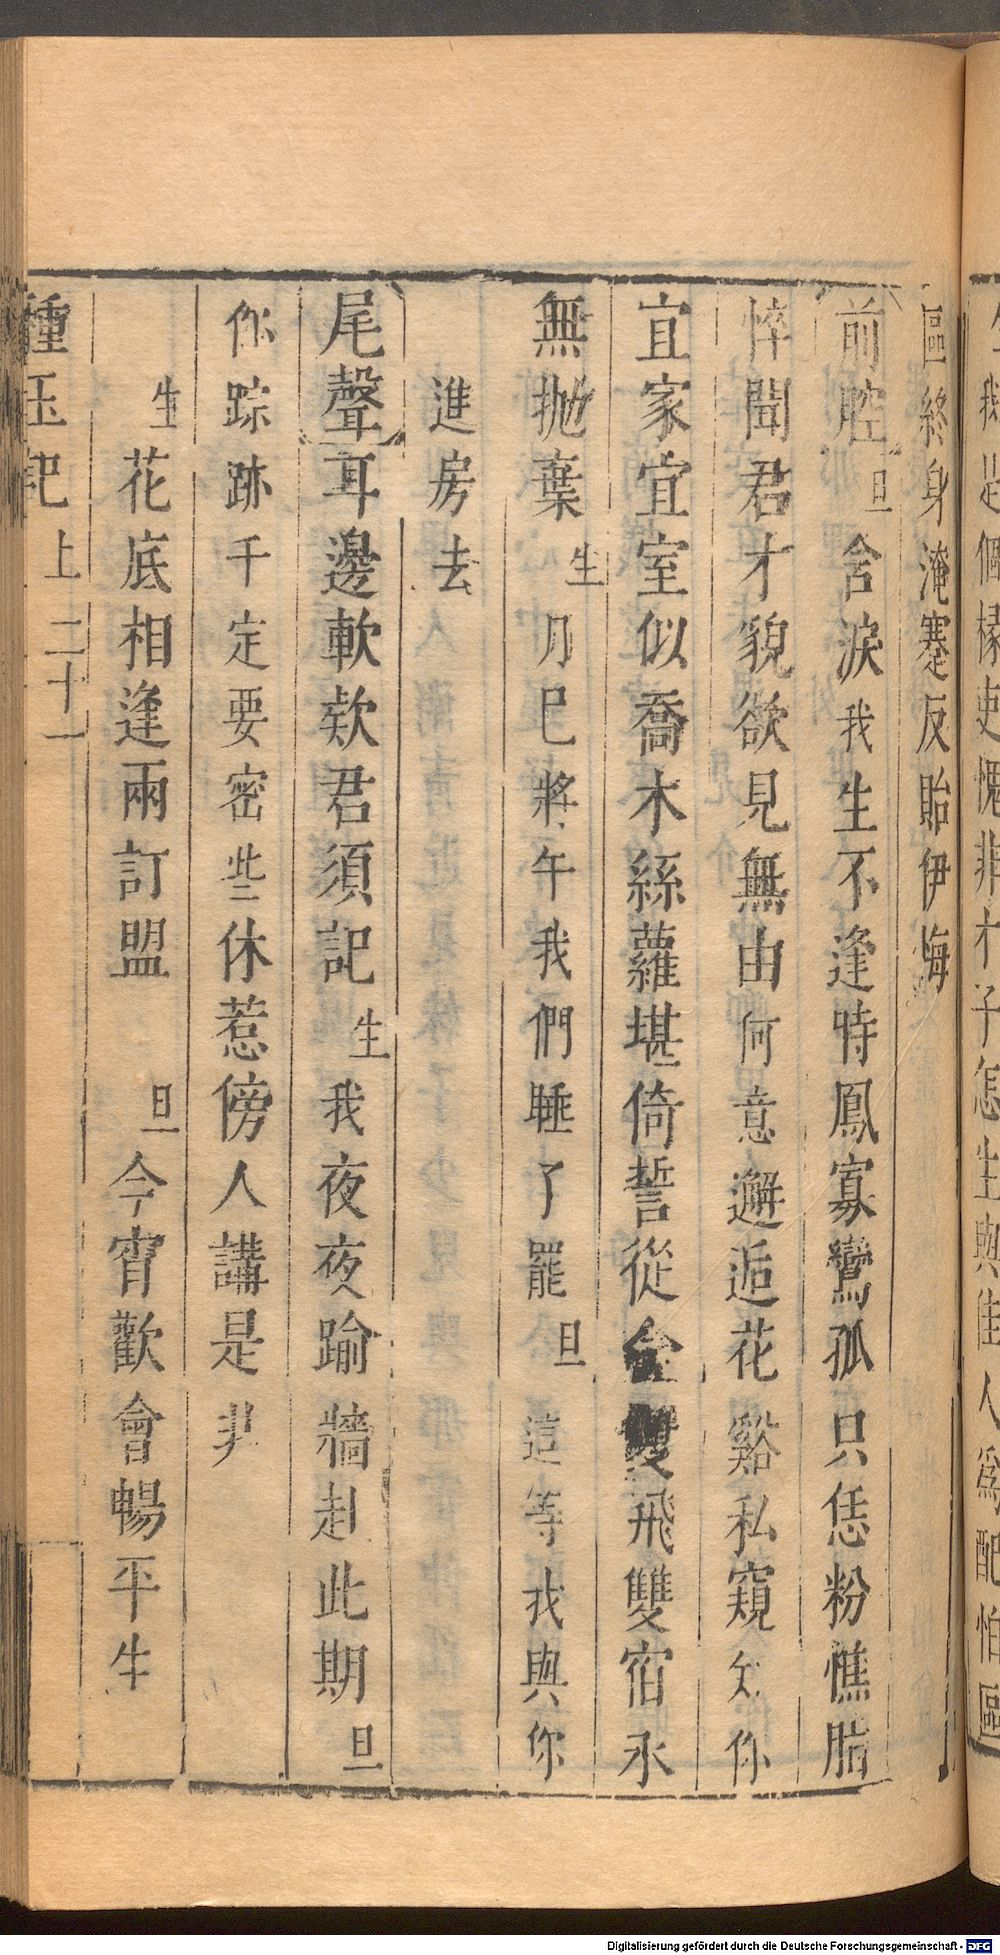 生我是個掾吏愧非才子怎生與佳人為配怕區
區終身淹蹇反貽伊悔
前腔 旦 含淚我生不逢時鳳寡鸞孤只恁粉憔脂
悴聞君才貌欲見無由何意邂逅花谿私窺知你
宜家宜室似喬木絲蘿堪倚誓從今雙飛雙宿永
無拋棄 生 月已將午我們睡了罷 旦 這等我與你
進房去
尾聲 耳邊軟欵君須記 生 我夜夜踰牆赴此期 旦
你踪跡千定要密些休惹傍人講是非
生 花底相逢兩訂盟 旦 今宵歡會暢平生
種玉記 上 二十一
Digitalisierung gefördert durch die Deutsche Forschungsgemeinschaft - DFG